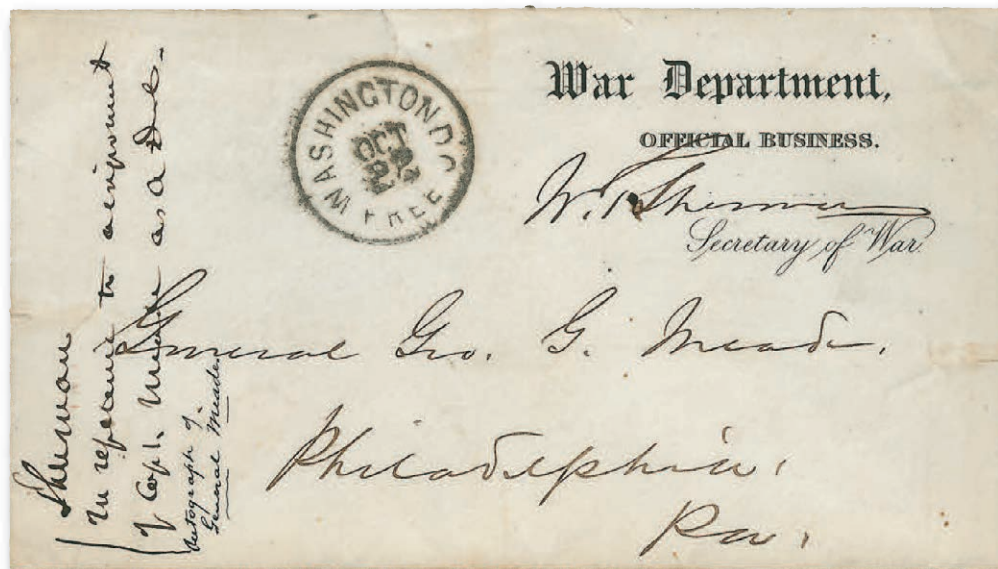 War Department,
OFFICIAL BUSINESS.
W. T. Sherman
Secretary of War.
WASHINGTON D.C.
FREE
General Geo. G. Meade.
Philadelphia,
Pa,
Sherman
in reference to assignment
of Capt. Meade as a
Autograph of
General Meade